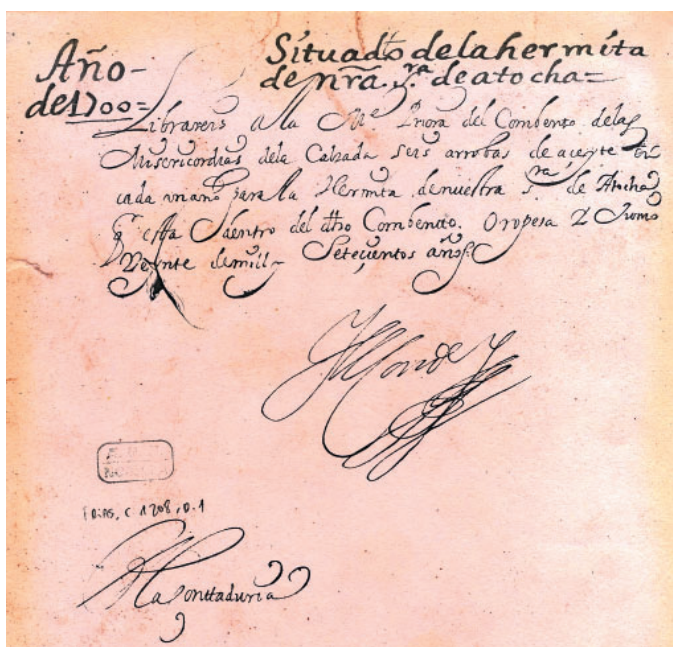 Año de 1700=
Situado de la hermita
de nrã. Sra. de atocha=
Librareis a la Me. Priora del Combento de las
Misericordias de la Calzada seis arrobas de aceyte en
cada un año para la Hermita de nuestra sra. de Atocha
q esta dentro del dho Combento. Oropesa y Junio
Veynte de mill y Setecientos años
El Conde
, C. 1208, D.1
La Conttaduria